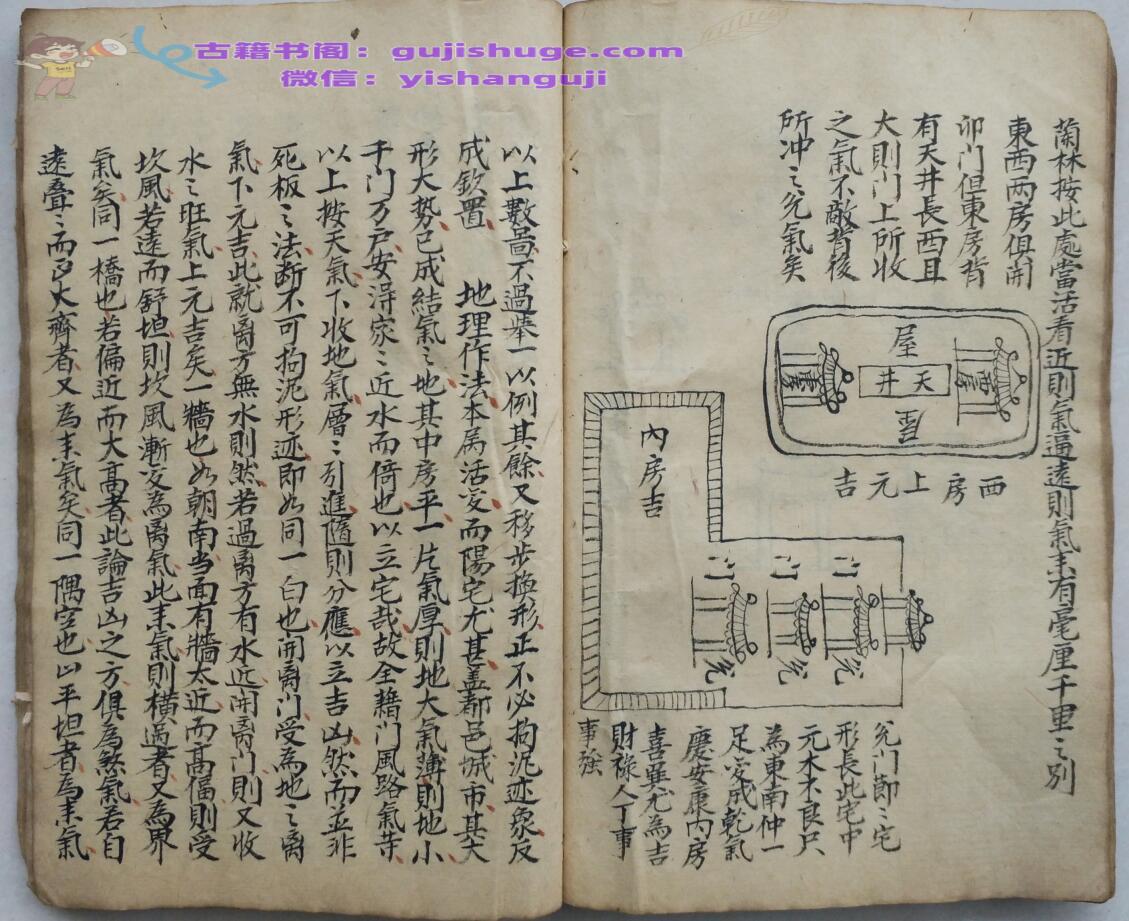 古籍书阁：gujishuge.com
微信：yishanguji
蘭林按此處當活看近則氣逼遠則氣耒有毫厘千里之別
東西两房俱開
卯门但東房背
有天井長西且
大則门上所收
之氣不敵背後
所冲之元氣矣
屋
天井
西房上元吉
內房吉
兊门節〻宅
形長此宅中
元木不良只
為東南仲一
足變成乾氣
慶安康內房
喜巽尤為吉
財禄人丁事
事強
以上數啚不過舉一以例其餘又移步換形正不必拘泥迹象反
成欽置　地理作法本属活变而陽宅尤甚盖都邑城市其大
形大势已成結氣之地其中房平一片氣厚則地大氣薄則地小
千门万戶安淂家〻近水而倚也以立宅哉故全籍门風路氣寺
以上按天氣下收地氣層〻引進隨則分應以立吉凶然而並非
死板之法断不可拘泥形迹即如同一白也開离门受為地之离
氣下元吉此就离方無水則然若過离方有水近開离门則又收
水之旺氣上元吉矣一牆也如朝南当面有牆太近而高偪則受
坎風若遠而舒坦則坎風漸变為离氣此耒氣則橫過者又為界
氣矣同一橋也若偏近而大高者此論吉凶之方俱為煞氣若自
遠叠〻而大齊者又為耒氣矣同一隅空也平坦者為耒氣